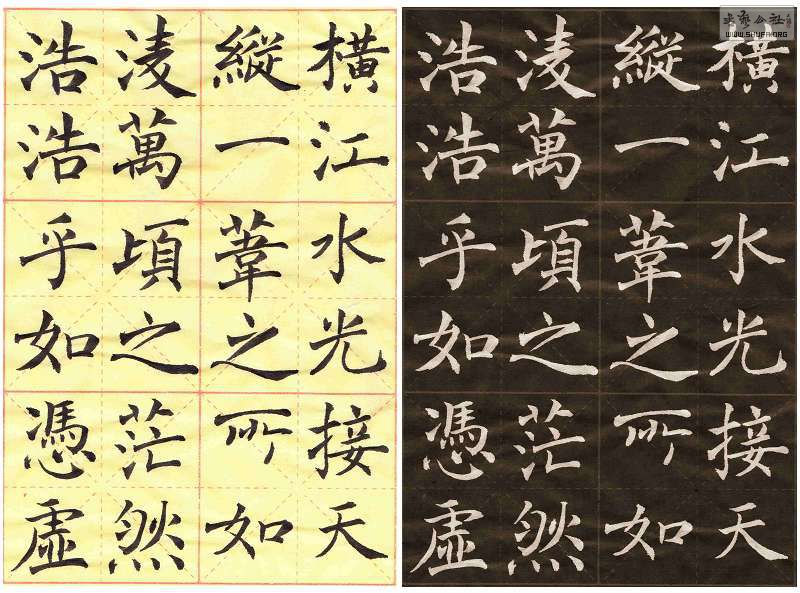 橫江水光接天
縱一葦之所如
淩萬頃之茫然
浩浩乎如憑虛
橫江水光接天
縱一葦之所如
淩萬頃之茫然
浩浩乎如憑虛
WWW.SHUFA.ORG